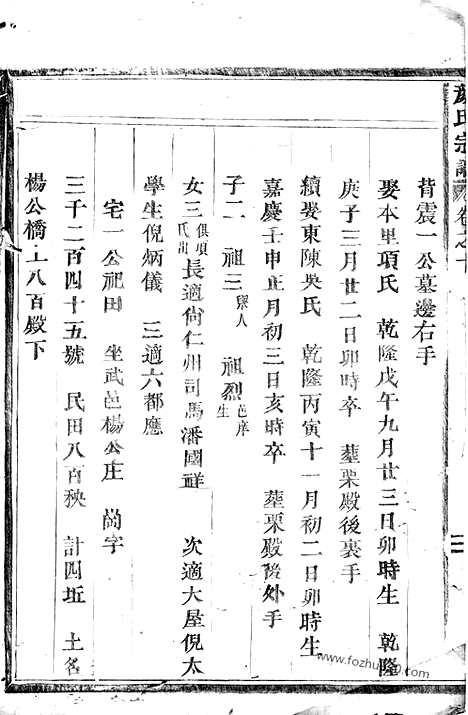 氏宗譜 卷之十
背震一公墓邊右手
娶本里項氏 乾隆戊午九月廿三日卯時生 乾隆
庚子三月廿二日卯時卒 塟栗殿後裏手
續娶東陳吳氏 乾隆丙寅十一月初二日卯時生
嘉慶壬申正月初三日亥時卒 塟栗殿後外手
子二 祖三與人 祖烈邑庠生
女三俱項氏出 長適尙仁州司馬潘國祥 次適大屋倪太
學生倪炳儀 三適六都應
宅一公祀田 坐武邑楊公庄 尙字
三千二百四十五號 民田八百秧 計四坵 土名
楊公橋上八百殿下
www.fozhu920.com